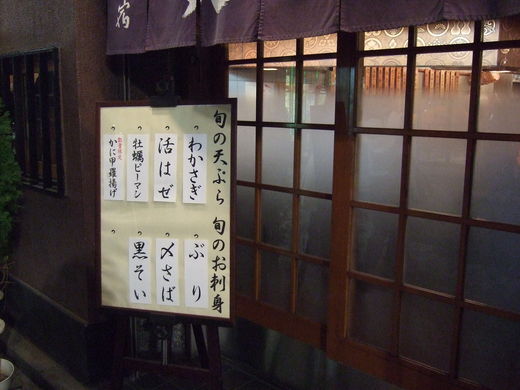 宿
旬の天ぷら 旬のお刺身
わかさぎ
活はぜ
牡蠣ピーマン
数量限定
かに甲羅揚げ
ぶり
〆さば
黒そい